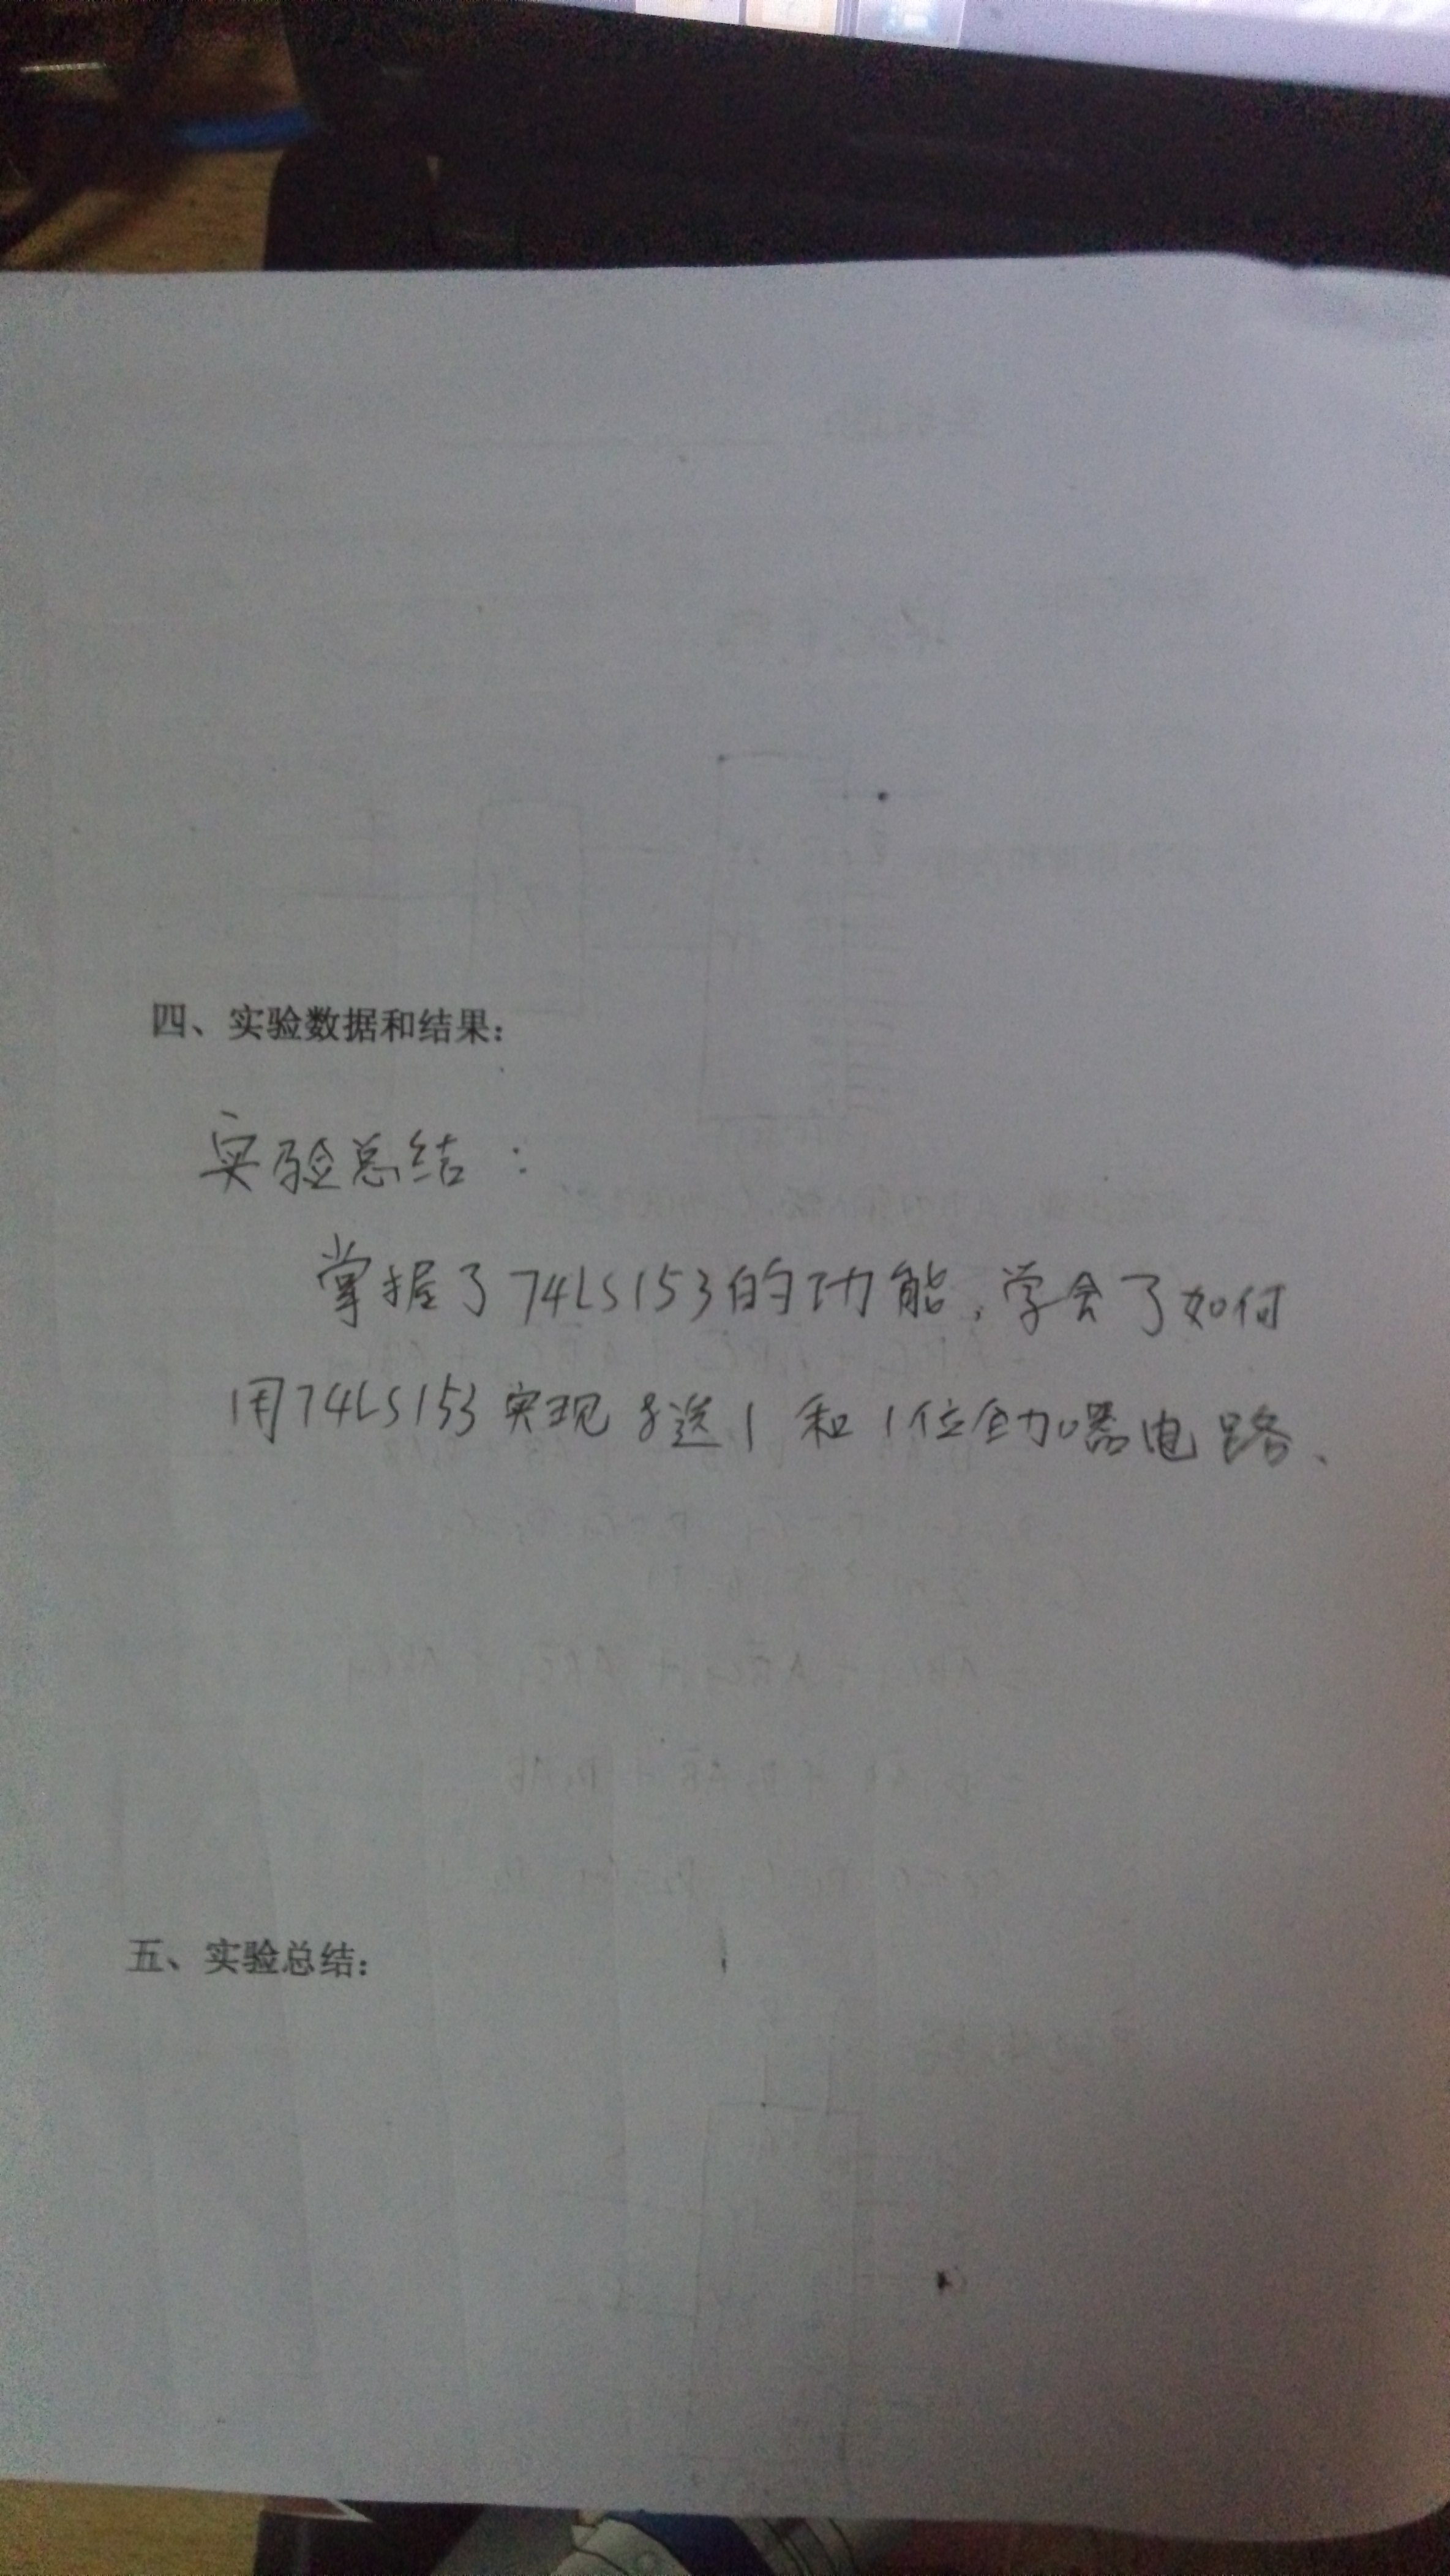 四、实验数据和结果:
实验总结:
掌握了74LS153的功能,学会了如何
用74LS153实现8选1和1位全加器电路、
五、实验总结: